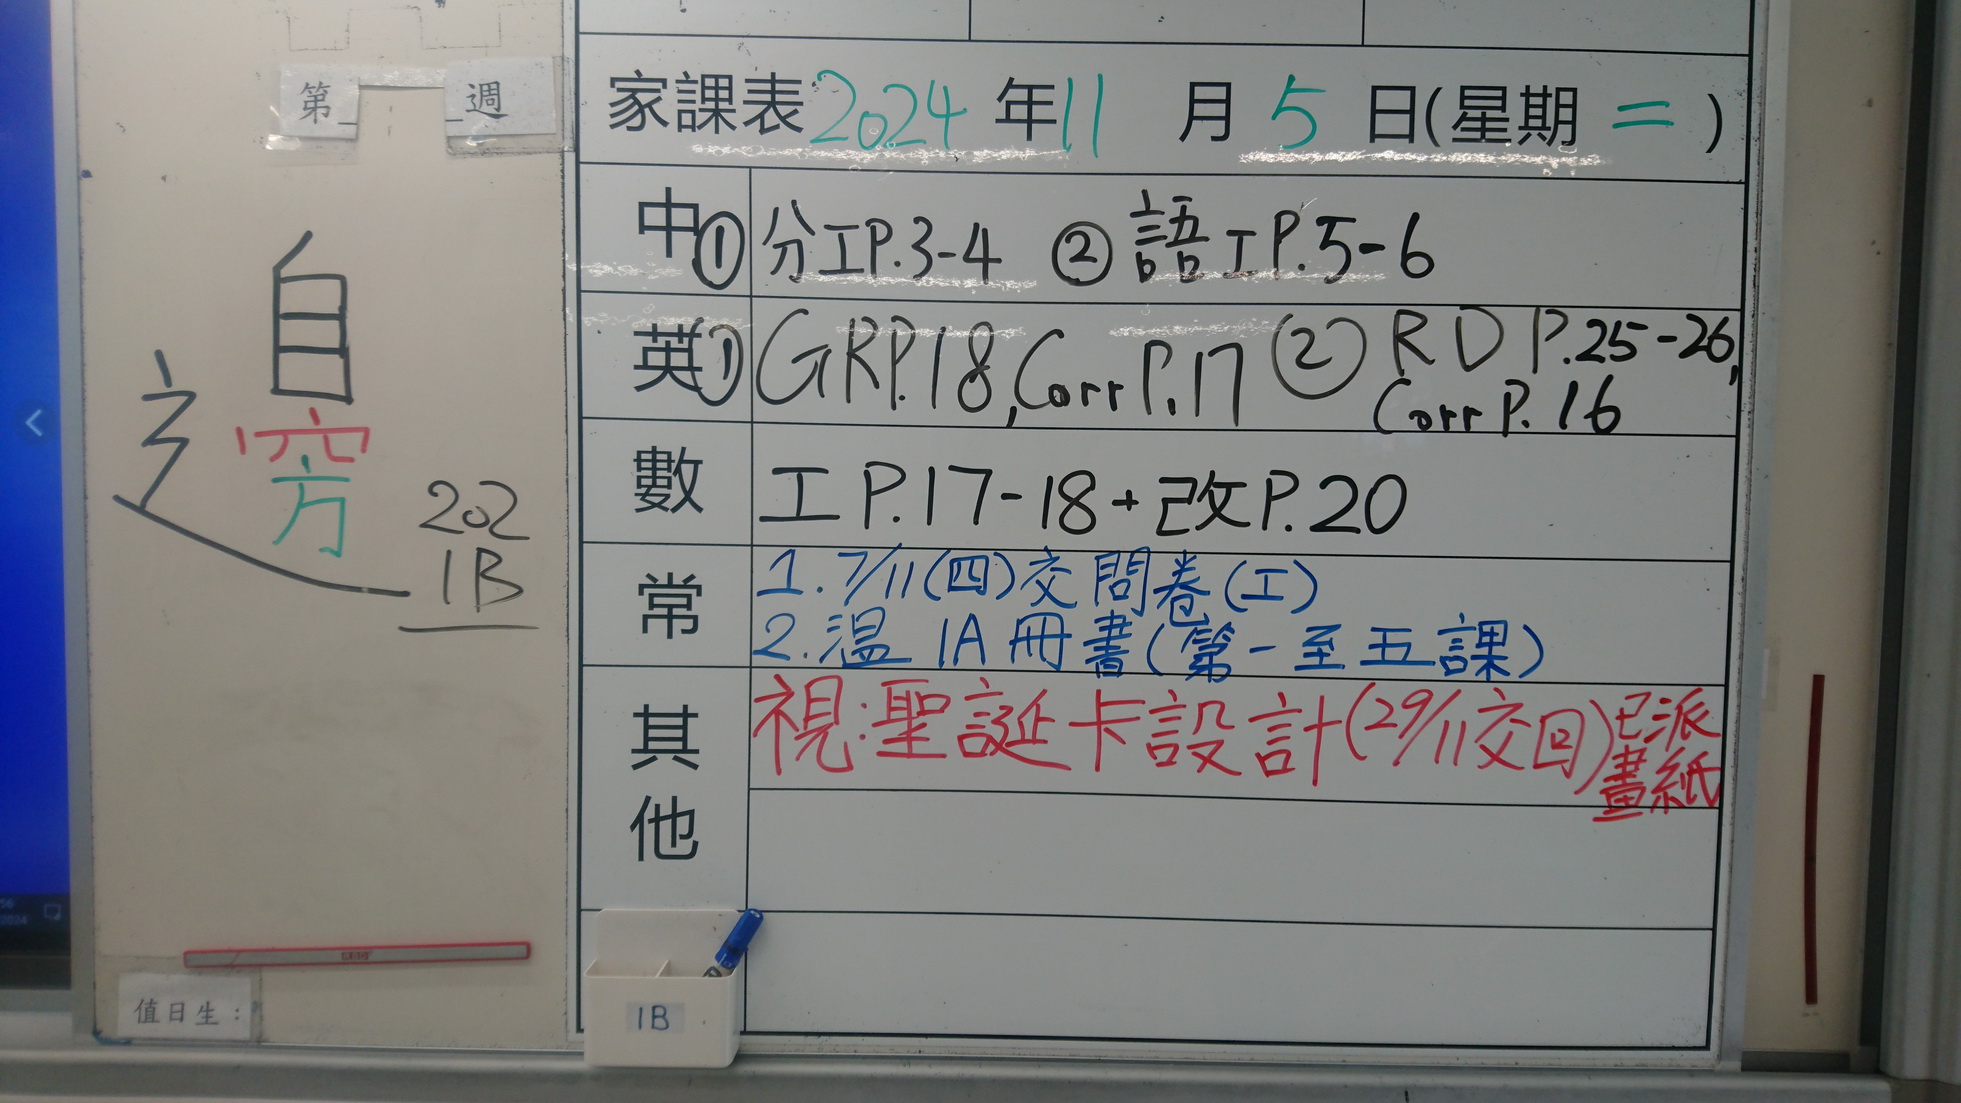 第 週
自
穷
辶
202
1B
值日生：
家課表2024年11月5日(星期二)
中①分工P.3-4 ②語工P.5-6
英①GRP.18,Corr P.17 ②RD P.25-26,
Corr P.16
數 工P.17-18+改P.20
常 1.7/11(四)交問卷(工)
2.溫1A冊書(第一至五課)
其他 視:聖誕卡設計(29/11交回)已派
畫紙
1B